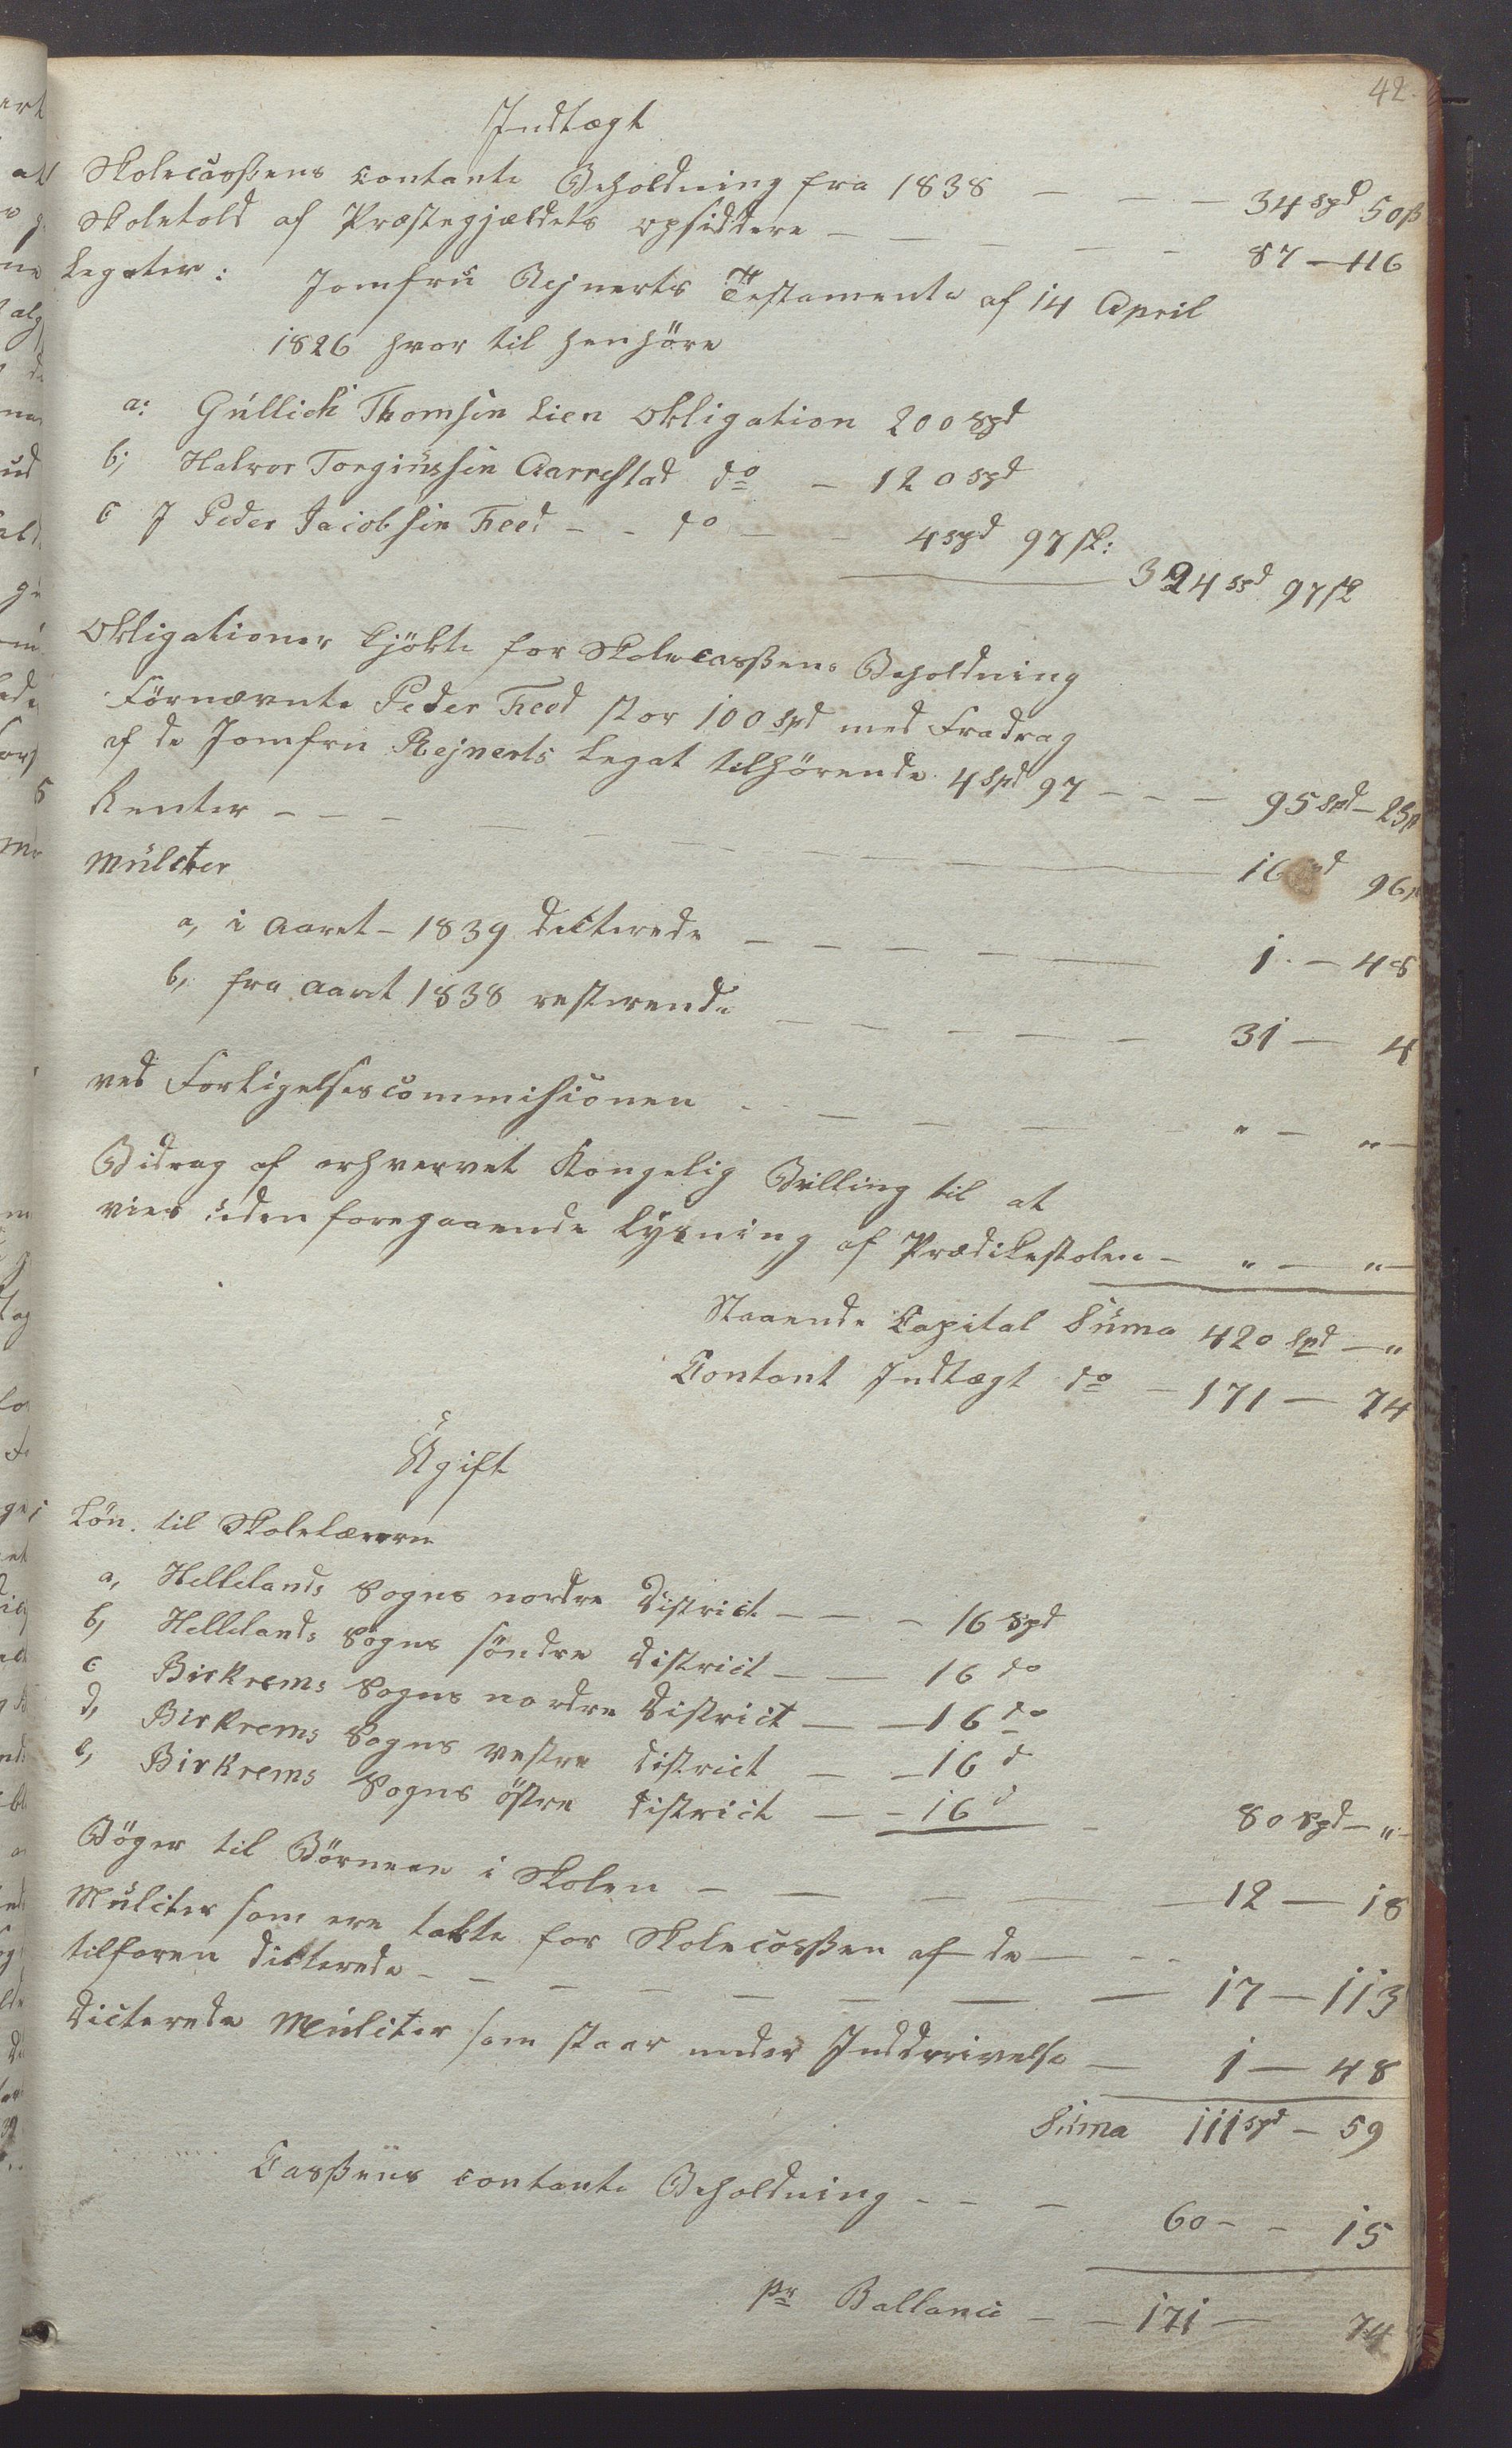 42.
Indtægt
Skolecassens contante Beholdning fra 1838 — — — 34 spd 50 ß
Skoletold af Præstegjældets opsiddere — — — — — 87 — 116
Legater: Jomfru Rejnerts Testamente af 14 April
1826 hvor til henhöre
a: Gullich Thomsen Lien obligation 200 spd
b; Halvor Torginssen Aarrestad do — 120 spd
c J Peder Jacobsen Feed — - do — — 4 spd 97 sk:
324 spd 97 sk
obligationer kjökte for Skolecassens Beholdning
Förnævnte Peder Feed stor 100 spd med Fradrag
af de Jomfru Rejnerts Legat tilhörende 4 spd 97 — — — 95 spd — 23 sk
Renter — — — — — — 16 spd 96 sk
Mulcter
a, i Aaret — 1839 dicterede — — — — — 1 — 48
b, fra Aaret 1838 resterende — — — — — 31 — 4
ved Forligelsescommisionen — — — — " — " —
Bidrag af erhvervet Kongelig Bevilling til at
vies uden foregaaende Lysning af Prædikestolen — " — " —
Staaende Capital Suma 420 spd — "
Contant Indtægt do — 171 — 74
Udgift
Lön til Skolelærerne
a, Hellelands Sogns nordre District — — — 16 spd
b, Hellelands Sogns söndre District — — 16 do
c Birkrems Sogns nordre District — — 16 do
d, Birkrems Sogns vestre District — — 16 d
e, Birkrems Sogns östre District — — 16 d — 80 spd — "
Böger til Börnene i Skolen — — — — — 12 — 18
Mulcter som ere tabte for Skolecassen af de — - -
tilforen dicterede — — — — — — — — 17 — 113
Dicterede Mulcter som staar under Inddrivelse — 1 — 48
Suma 111 spd — 59
Cassens contante Beholdning — — — 60 — — 15
pr Ballance — — 171 — 74